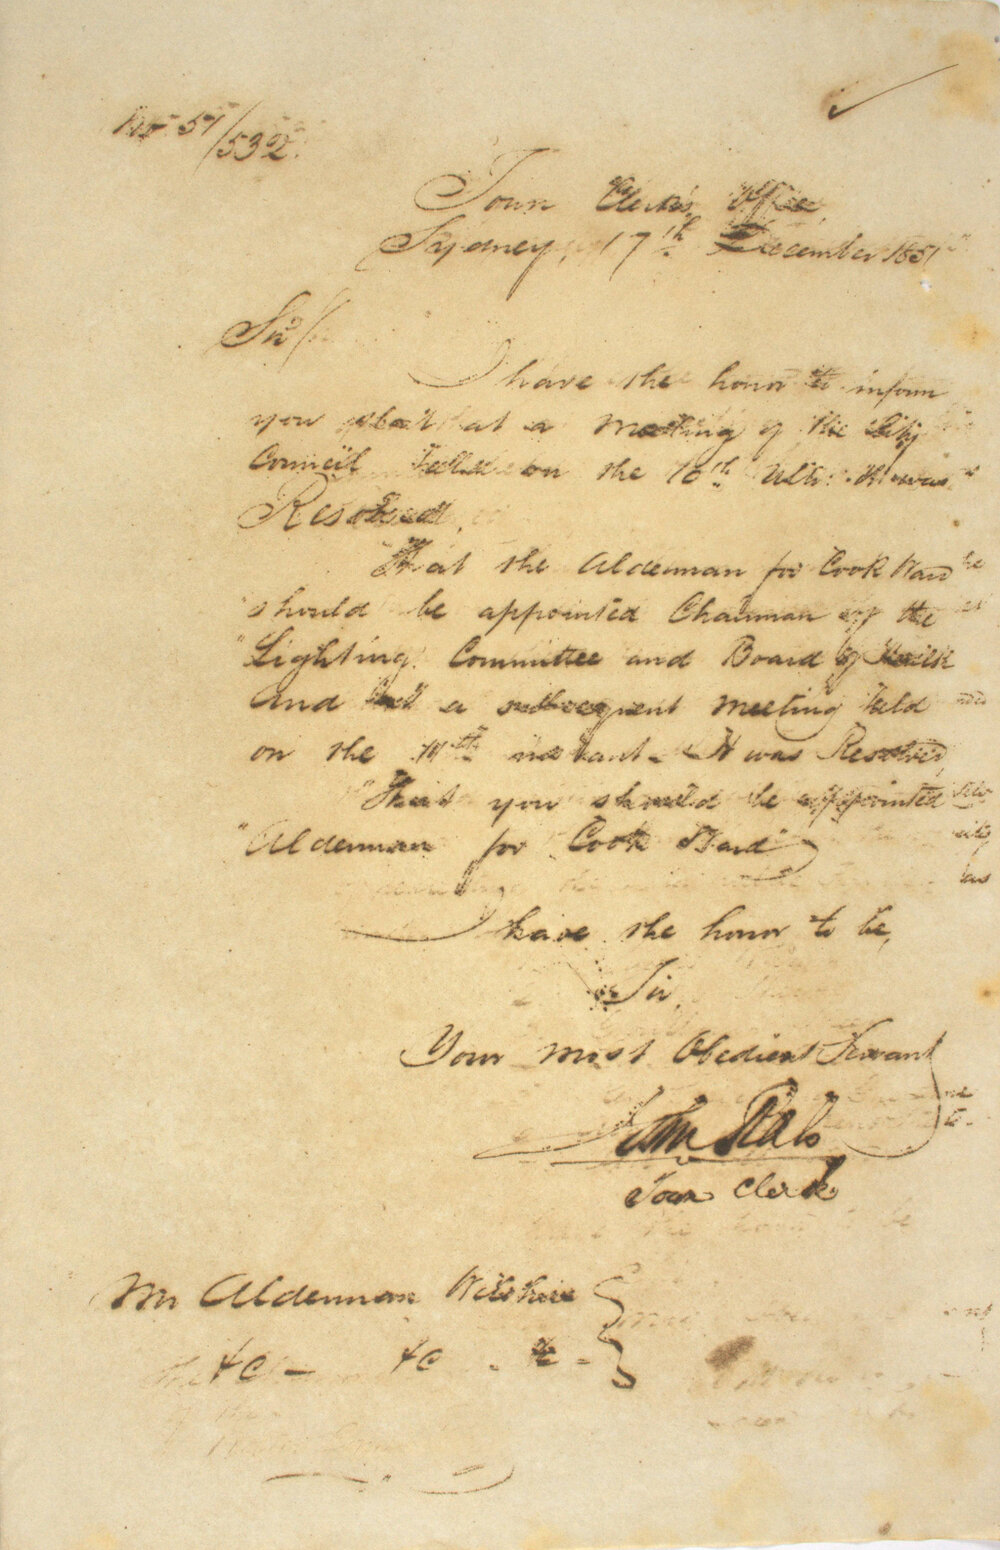 No 51/532.
Town Clerk's Office,
Sydney, 17th December 1851
Sir/
I have the honor to inform
you that at a meeting of the City
Council held on the 10th Ulto. It was
Resolved,
"That the Alderman for Cook Ward
"should be appointed Chairman of the
"Lighting Committee and Board of
And at a subsequent meeting held
on the 11th instant - It was Resolved,
"That you should be appointed
"Alderman for Cook Ward"
I have the honor to be,
Sir,
Your most Obedient Servant
John
Town Clerk
Mr Alderman Wilshire
&c - &c - &c -